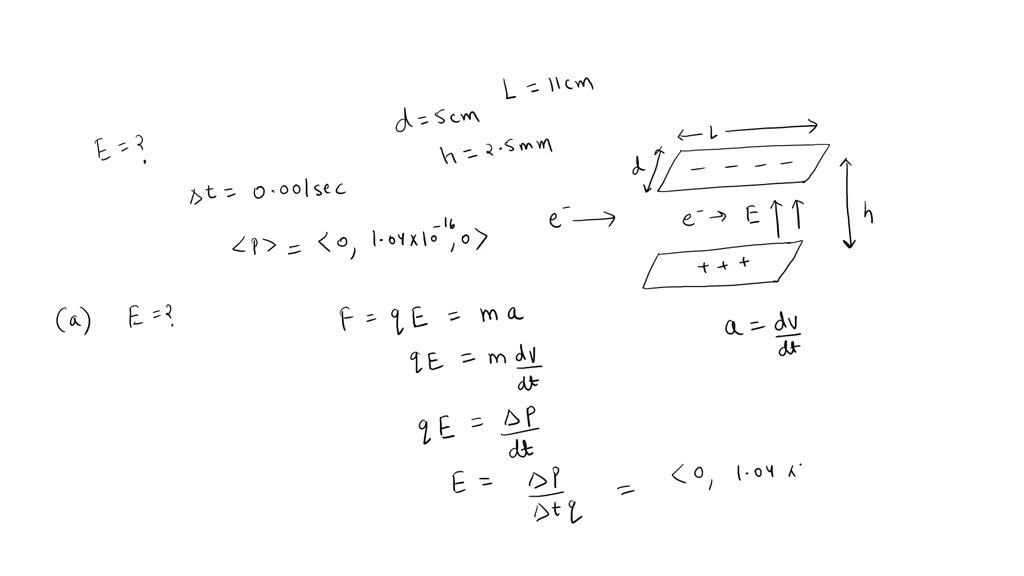 L = 11cm
d = 5cm
E = ?
h = 2.5mm
Δt = 0.001sec
<P> = <0, 1.04x10^-16, 0>
← L →
d
- - - -
e⁻ → e⁻ → E ↑ ↑ h
+ + +
(a) E = ?
F = qE = ma
a = dv/dt
qE = m dv/dt
qE = ΔP/dt
E = ΔP/Δtq = <0, 1.04 x